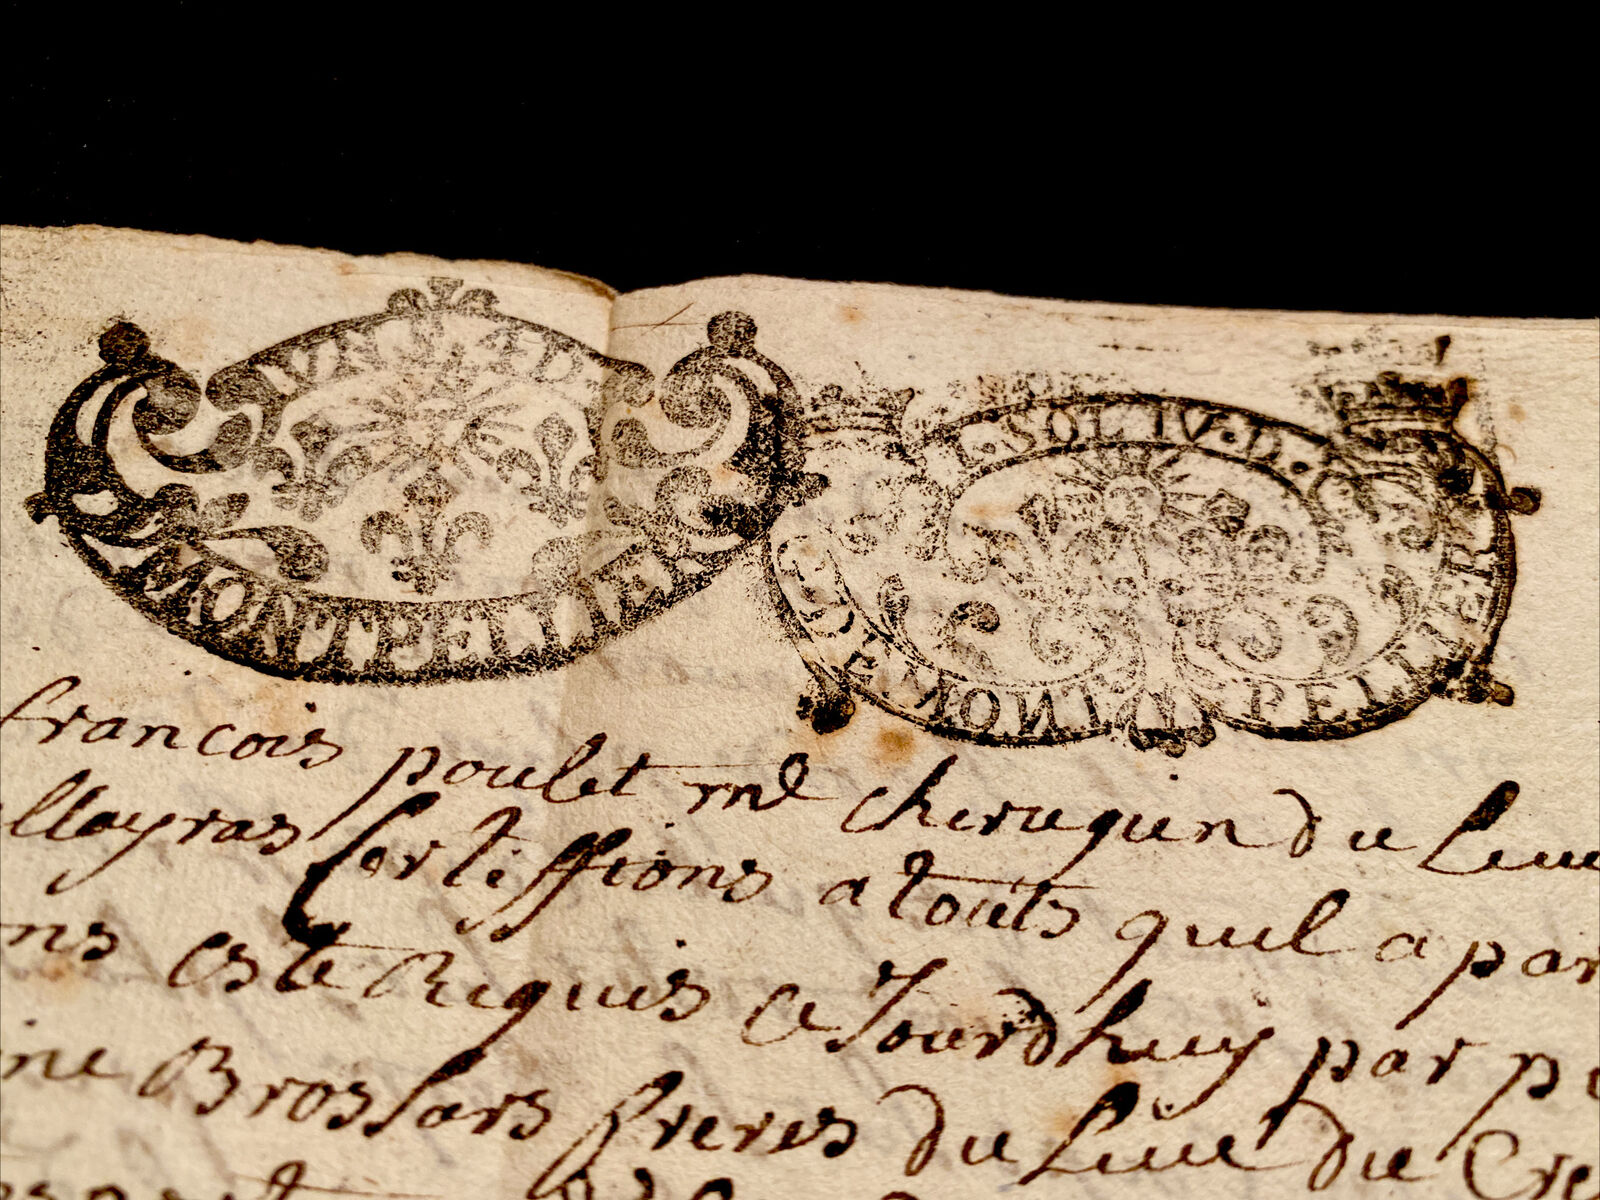 VN S 4 D
MONTPELLIER
I · SOL IV · D ·
DE MONT PELLIER
francois poulet me cherugien du lieu
llayras Certiffions a touts quil apar
ns este Requis Ce Jourdhuy par p
ne Brossars freres du lieu du Cre